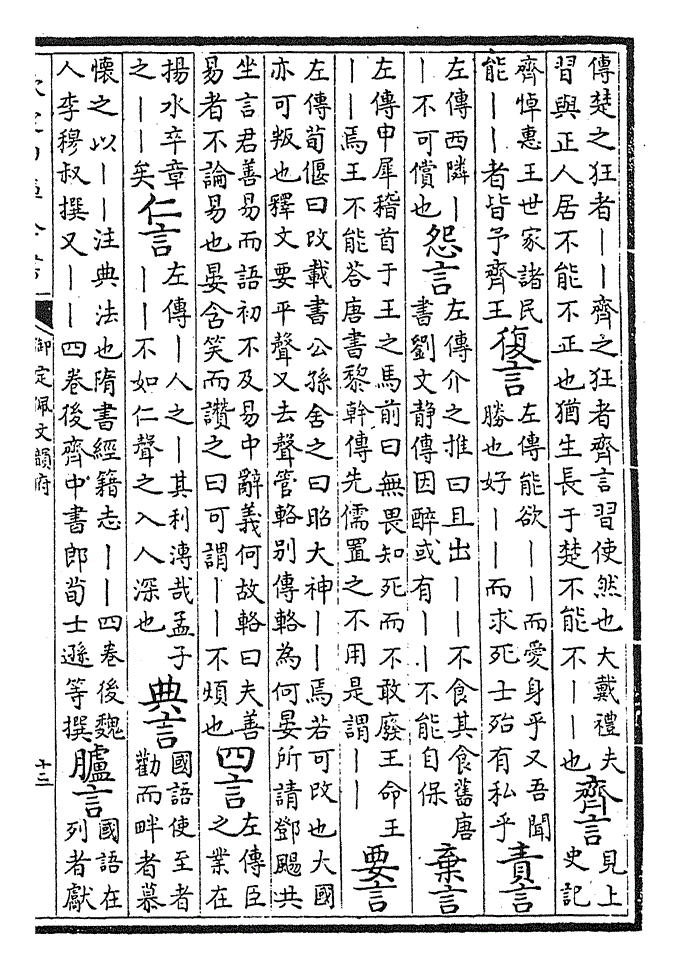 傳楚之狂者｜｜齊之狂者齊言習使然也大戴禮夫
習與正人居不能不正也猶生長于楚不能不｜｜也
齊言
見上
史記
齊悼惠王世家諸民
能｜｜者皆予齊王
復言
左傳能欲｜｜而愛身乎又吾聞
勝也好｜｜而求死士殆有私乎
責言
左傳西隣｜
｜不可償也
怨言
左傳介之推曰且出｜｜不食其食舊唐
書劉文靜傳因醉或有｜｜不能自保
棄言
左傳申犀稽首于王之馬前曰無畏知死而不敢廢王命王
｜｜焉王不能荅唐書黎幹傳先儒置之不用是謂｜｜
要言
左傳荀偃曰改載書公孫舍之曰昭大神｜｜焉若可改也大國
亦可叛也釋文要平聲又去聲管輅別傳輅為何晏所請鄧颺共
坐言君善易而語初不及易中辭義何故輅曰夫善
易者不論易也晏含笑而讚之曰可謂｜｜不煩也
四言
左傳臣
之業在
揚水卒章
之｜｜矣
仁言
左傳｜人之｜其利溥哉孟子
｜｜不如仁聲之入人深也
典言
國語使至者
勸而畔者慕
懷之以｜｜注典法也隋書經籍志｜｜四卷後魏
人李穆叔撰又｜｜四卷後齊中書郎荀士遜等撰
臚言
國語在
列者獻
御定佩文韻府
十三